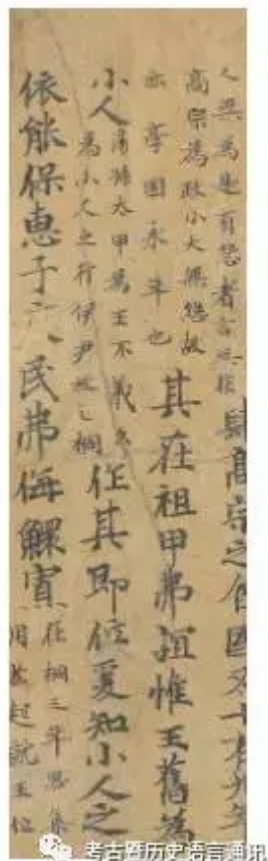 人無為是有怨者言無非肆高宗之國五十有九年
高宗為政小大無怨故
亦享國永年也
其在祖甲弗誼惟王舊為
小人
湯孫太甲為王不義久
為小人之行伊尹放之桐
作其即位爰知小人之
依能保惠于民弗侮鰥寡
在桐三年思集
用光起就王位
考古暨历史语言通讯